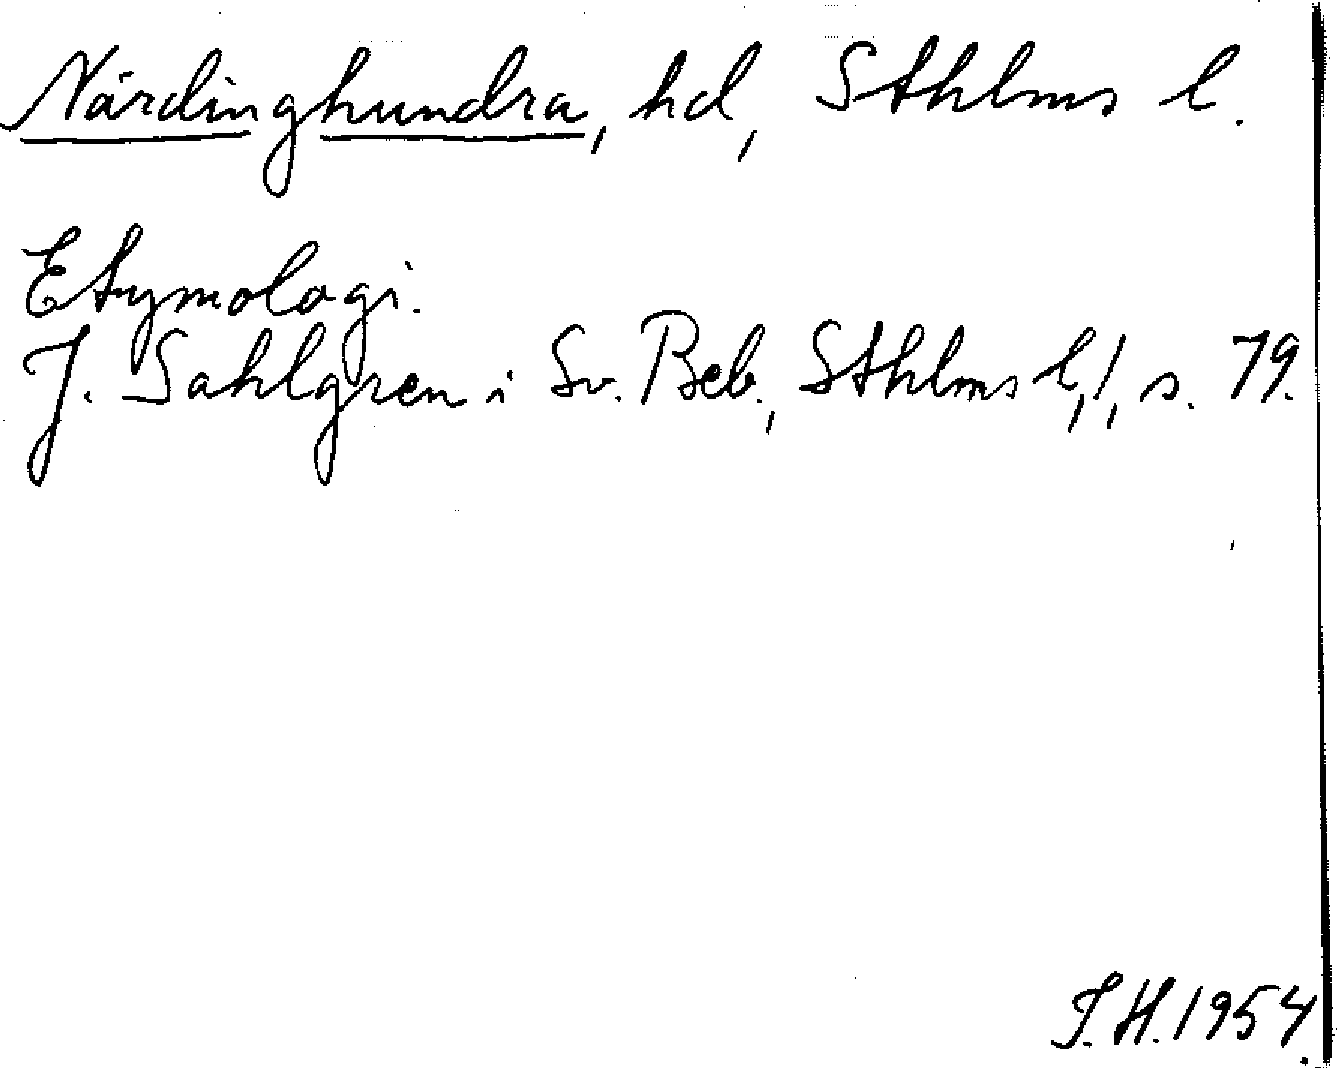 Närdinghundra, hd, Sthlms l.
Etymologi.
J. Sahlgren i Sv. Beb., Sthlms l, 1, s. 79.
I.H. 1954.